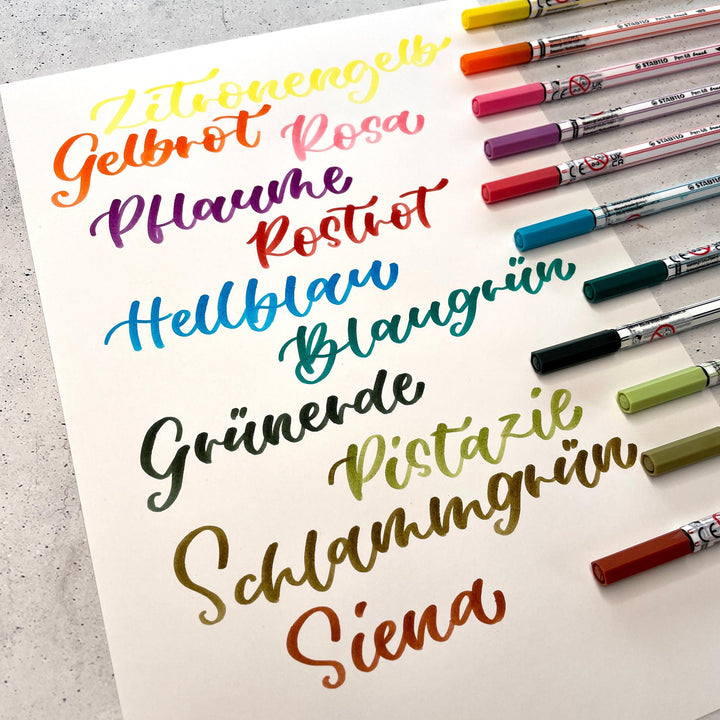 Zitronengelb
Gelbrot Rosa
Pflaume
Rostrot
Hellblau
Blaugrün
Grünerde
Pistazie
Schlammgrün
Siena
STABILO Pen 68 brush
STABILO Pen 68 brush
STABILO Pen 68
STABILO
CE UK CA
CE
CE